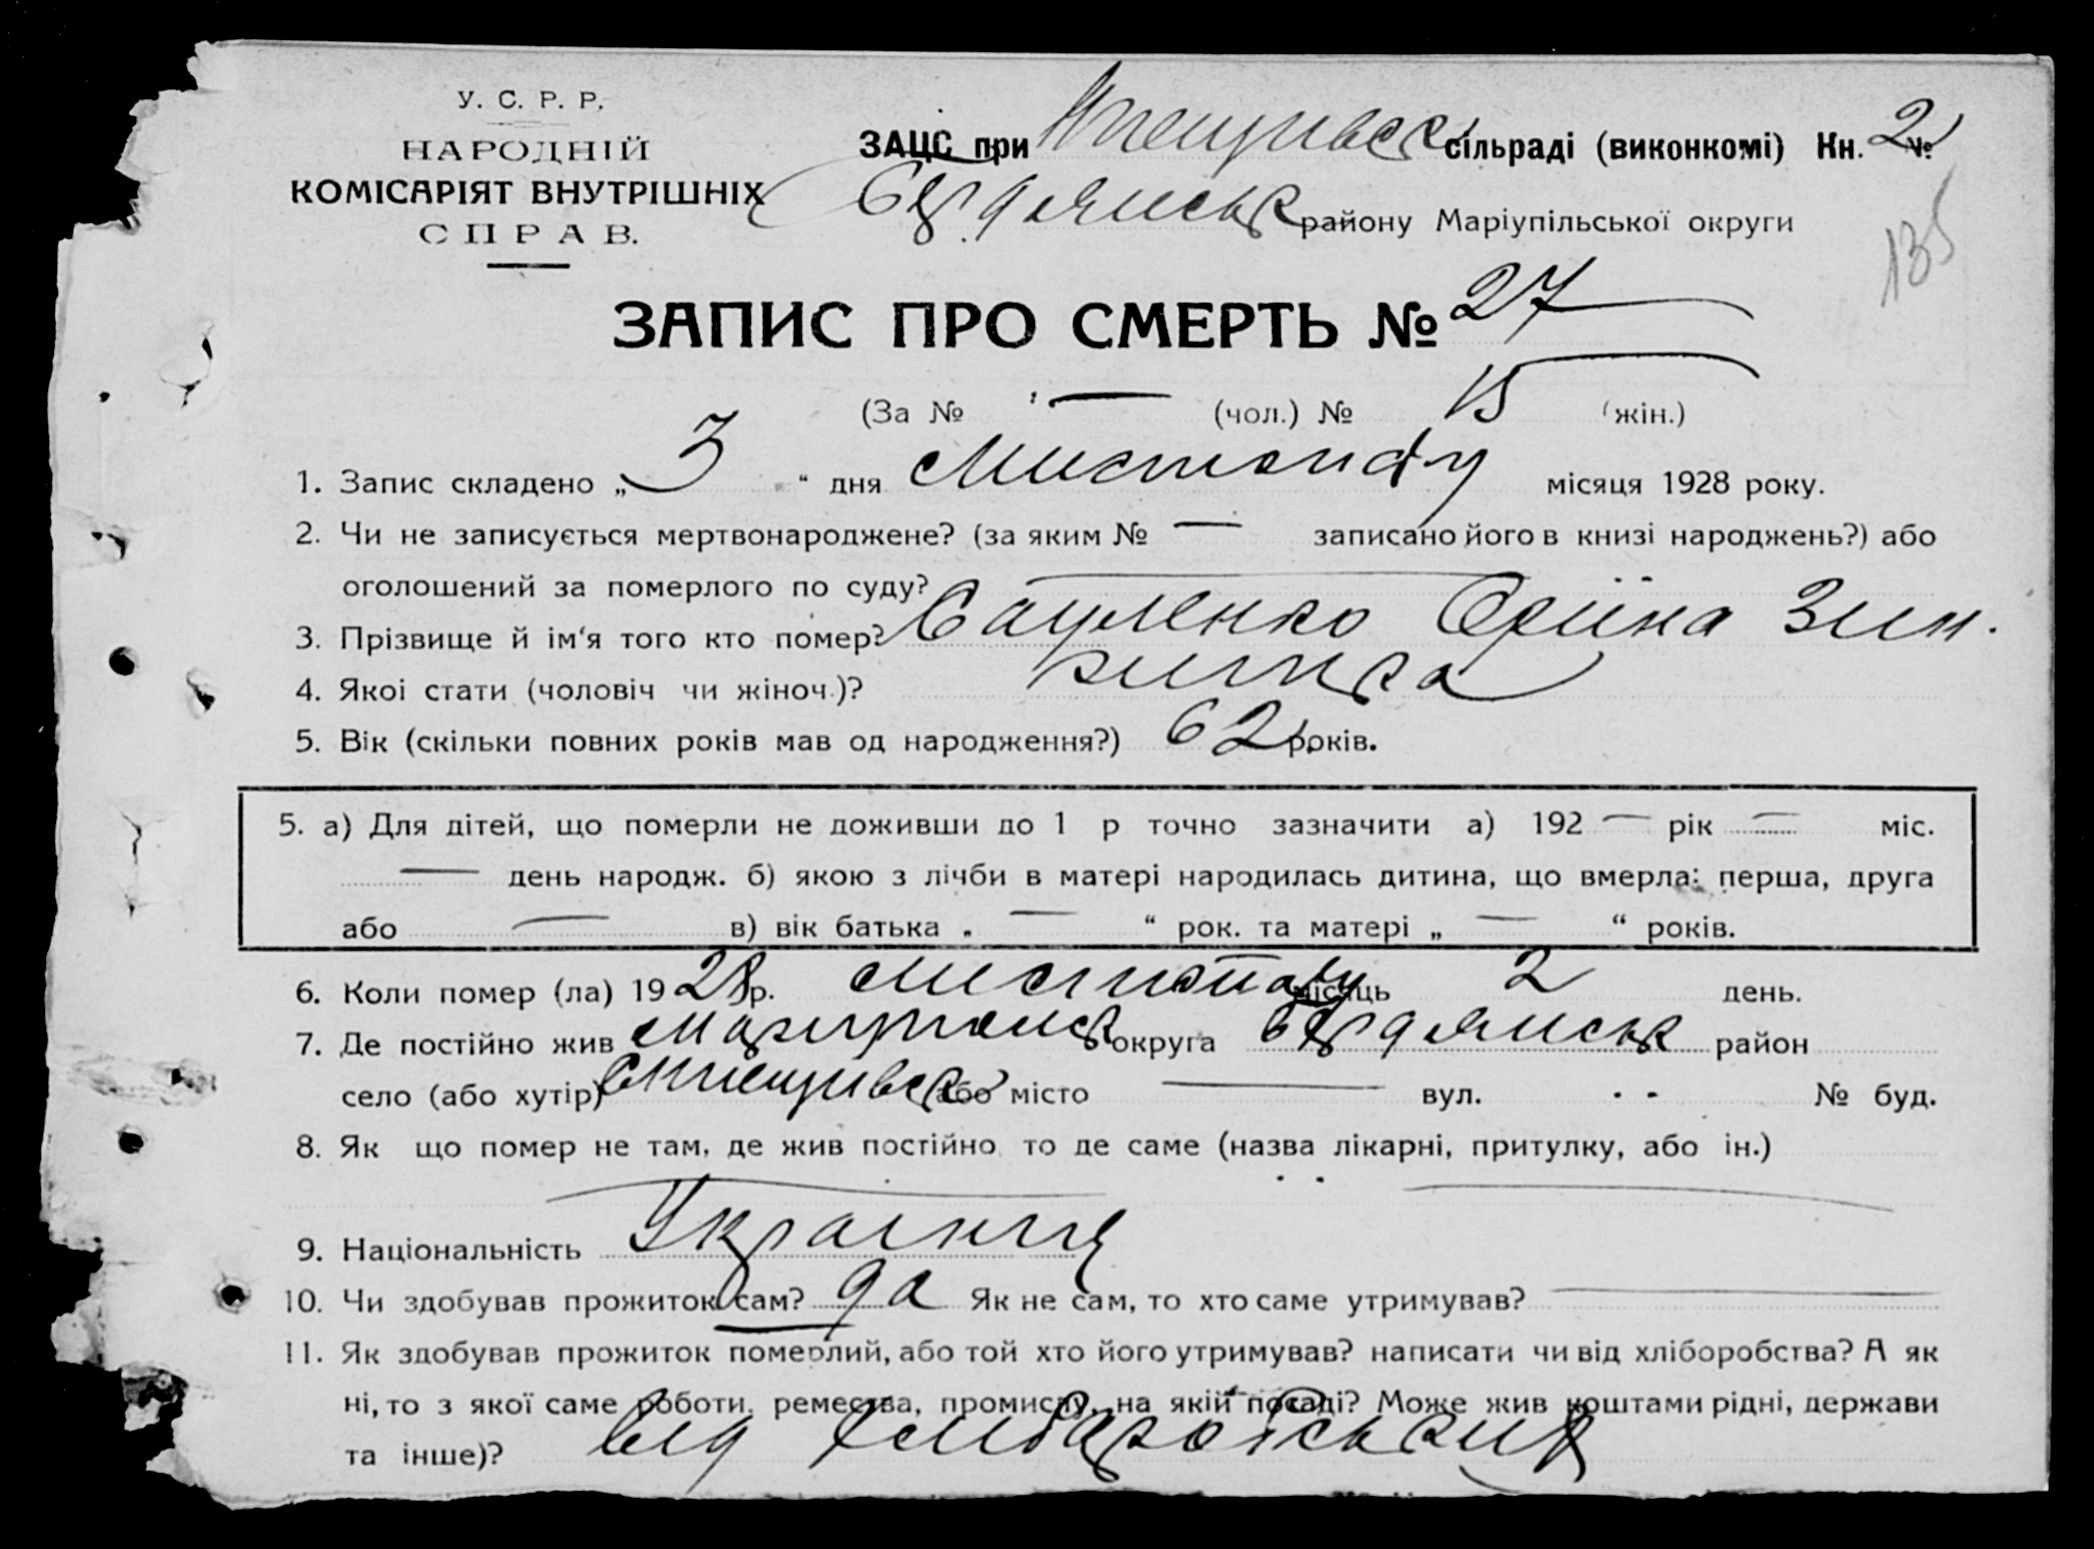 У. С. Р. Р.
НАРОДНІЙ
КОМІСАРІЯТ ВНУТРІШНІХ
СПРАВ.
ЗАЦС при сільраді (виконкомі) Кн. 2 №
Бердянськ району Маріупільської округи
135
ЗАПИС ПРО СМЕРТЬ № 27
(За № — (чол.) № 15 (жін.)
1. Запис складено „ 3 “ дня Листопаду місяця 1928 року.
2. Чи не записується мертвонароджене? (за яким № — записано його в книзі народжень?) або
оголошений за померлого по суду? —
3. Прізвище й ім'я того кто помер? Зин.
4. Якоі стати (чоловіч чи жіноч.)? жинка
5. Вік (скільки повних років мав од народження?) 62 років.
5. а) Для дітей, що померли не доживши до 1 р точно зазначити а) 192 — рік — міс.
— день народж. б) якою з лічби в матері народилась дитина, що вмерла: перша, друга
або — в) вік батька „ — “ рок. та матері „ — “ років.
6. Коли помер (ла) 1928 р. листопаду місяць 2 день.
7. Де постійно жив Мариупольск округа Бердянськ район
село (або хутір) або місто — вул. - - № буд.
8. Як що помер не там, де жив постійно то де саме (назва лікарні, притулку, або ін.)
9. Національність Украінця
10. Чи здобував прожиток сам? да Як не сам, то хто саме утримував? —
11. Як здобував прожиток померлий, або той хто його утримував? написати чи від хліборобства? А як
ні, то з якої саме роботи, ремества, промислу, на якій посаді? Може жив коштами рідні, держави
та інше)? від